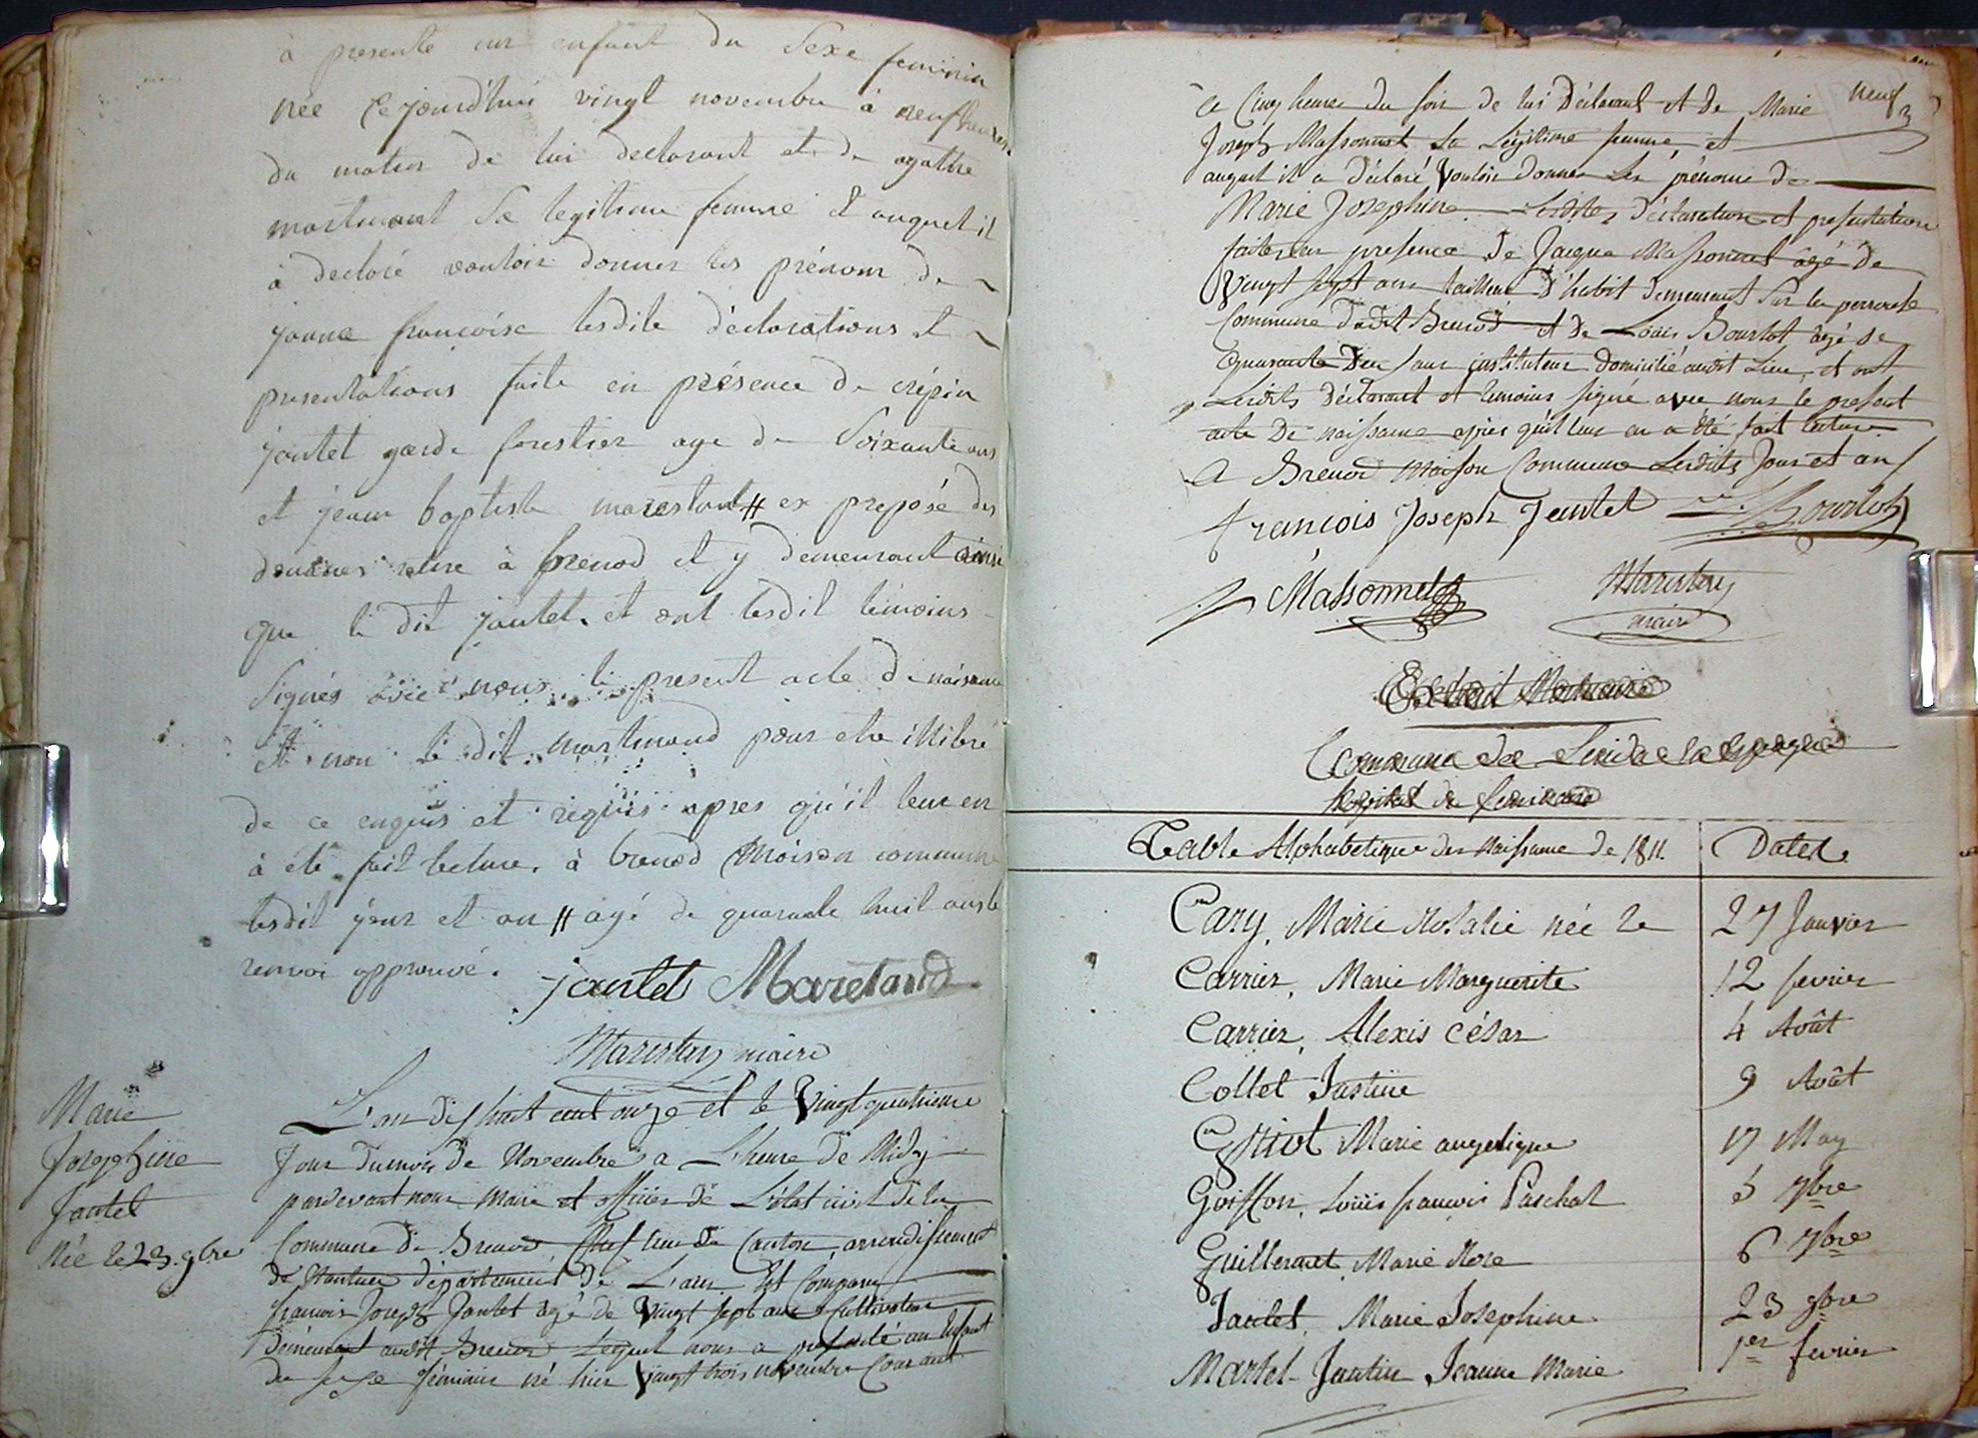 à presenté un enfant du Sexe feminin
née Cejourdhui vingt novembre à neuf heures
du matin de lui declarant et de agathe
martinand Sa legitime femme et auquel il
à declaré vouloir donner les prénom de
janne francoise lesdite déclarations et
presentations faite en présence de crépin
jantet garde forestier age de Soixante ans
et jean baptiste marestant # ex preposé des
douanes retiré à brenod et y demeurant ainsi
que le dit jantet, et ont lesdit témoins
Signés avec nous le present acte de naisance
et non le dit martinand pour etre illitéré
de ce enquis et requis apres qu'il leur en
à été fait lecture, à brenod Maison commune
lesdit jour et an # agé de quarante huit ans le
renvoi approuvé.
jantet Maretand
Marestan maire
Marie
Josephine
Jantet
Née le 23. 9bre
L'an dix huit cent onze et le Vingt quatrieme
Jour du mois de Novembre a L'heure de Midy
pardevant nous Maire et officier de L'état civil de la
Commune de Brenod Chef lieu de Canton, arrondissement
de Nantua département de L'ain Est Comparu
francois Joseph Jantet agé de Vingt sept ans Cultivateur
demeurant audit Brenod Lequel nous a presenté un Enfant
du sexe féminin né hier Vingt trois novembre Courant
neuf
a Cinq heures du soir de lui Déclarant et De Marie
Joseph Massonnet Sa Légitime femme et
auquel il a déclaré Vouloir donner Les prénoms de
Marie Josephine Lesdites Déclaration et présentation
faites en presence de Jacque Massonnet agé de
Vingt sept ans tailleur D'habit demeurant sur la
Commune dudit Brenod et de Louis Bourlot agé de
Quarante Deux ans instituteur domicilié audit Lieu, et ont
Lesdits Déclarant et temoins signé avec nous le present
acte De naissance apres qu'il leur en a été fait lecture
A Brenod Maison Commune Lesdits Jour et an
francois Joseph Jantet Bourlot
J Massonnet Marestan
maire
Extrait Mortuaire
Commune de
hopital du
Table Alphabetique des Naissance de 1811. Dates
Cary, Marie Rosalie née le 27 Janvier
Carrier, Marie Marguerite 12 fevrier
Carrier, Alexis César 4 Août
Collet Justine 9 Août
Marie angelique 17 May
Goiffon, Louis francois Paschal 5 7bre
Guillermet, Marie Rose 6 7bre
Jantet, Marie Josephine 23 9bre
Martel Jantin Jeanne Marie 1er fevrier